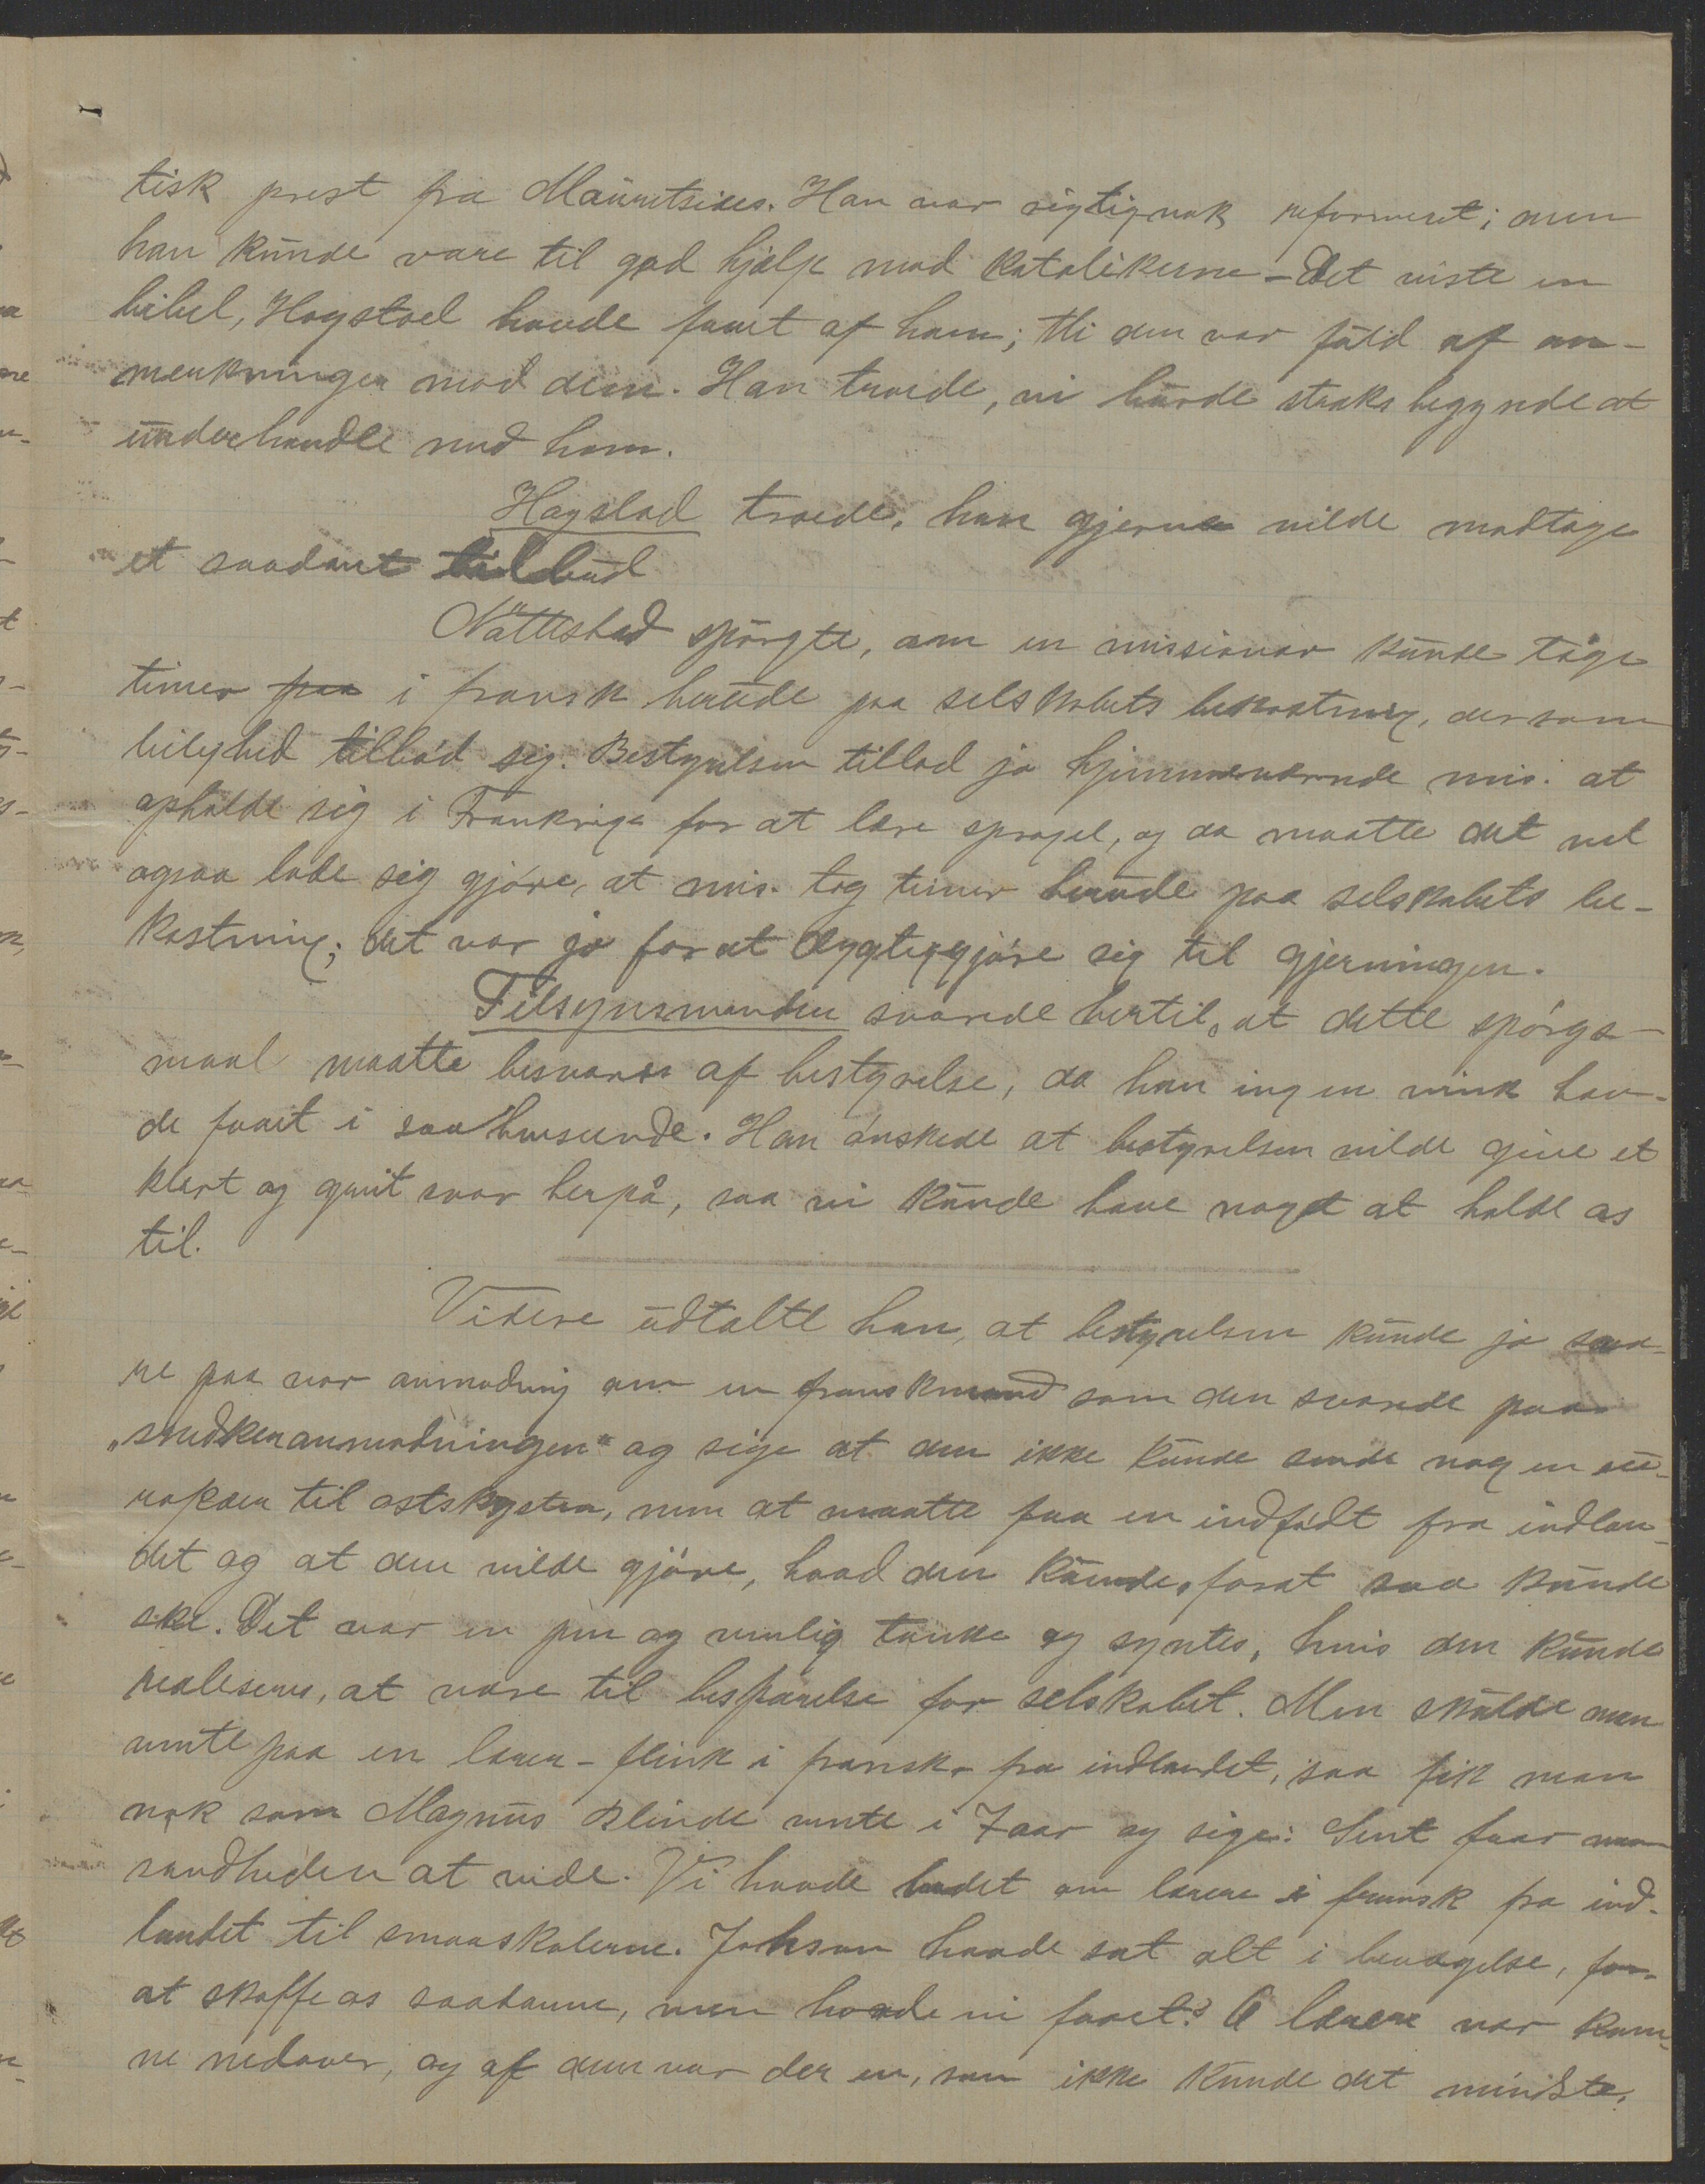 tisk prest fra Mauritsius. Han var rigtignok reformert; men
han kunde være til god hjælp mod katolikerne – Det viste en
bibel, Hogstad havde faaet af ham; thi den var fuld af an-
merkninger mod dem. Han troede, vi burde straks begynde at
underhandle med ham.
Hogstad troede, han gjerne vilde modtage
et saadant tilbud
Nättestad spørgte, om en missionær kunde tage
timer paa i fransk herude paa selskabets bekostning, dersom
leilighed tilbød sig. Bestyrelsen tillod jo hjemmeværende mis. at
opholde sig i Frankrige for at lære sproget, og da maatte det vel
ogsaa lade sig gjøre, at mis. tog timer herude paa selskabets be-
kostning; det var jo for at dygtiggjøre sig til gjerningen.
Tilsynsmanden svarede hertil, at dette spørgs-
maal maatte besvares af bestyrelse, da han ingen vink hav-
de faaet i saa henseende. Han ønskede at bestyrelsen vilde give et
klart og greit svar herpå, saa vi kunde have noget at holde os
til.
Videre udtalte han, at bestyrelsen kunde jo sva-
re paa vor anmodning om en franskmand som den svarede paa
„snedkeranmodningen“ og sige at den ikke kunde sende nogen eu-
ropæer til østkysten, men at maatte faa en indfødt fra indlan-
det og at den vilde gjøre, hvad den kunde, forat saa kunde
ske. Det var en pen og rimelig tanke og syntes, hvis den kunde
realiseres, at være til besparelse for selskabet. Men skulde man
vente paa en lærer – flink i fransk – fra indlandet, saa fik man
nok som Magnus Blinde vente i 7 aar og sige: Sent faar man
sandheden at vide. Vi havde bedet om lærere i fransk fra ind-
landet til smaaskolerne. Johnson havde sat alt i bevægelse, for
at skaffe os saadanne, men hvad havde vi faaet? 6 lærere var kom-
ne nedover, og af dem var der en, som ikke kunde det mindste,